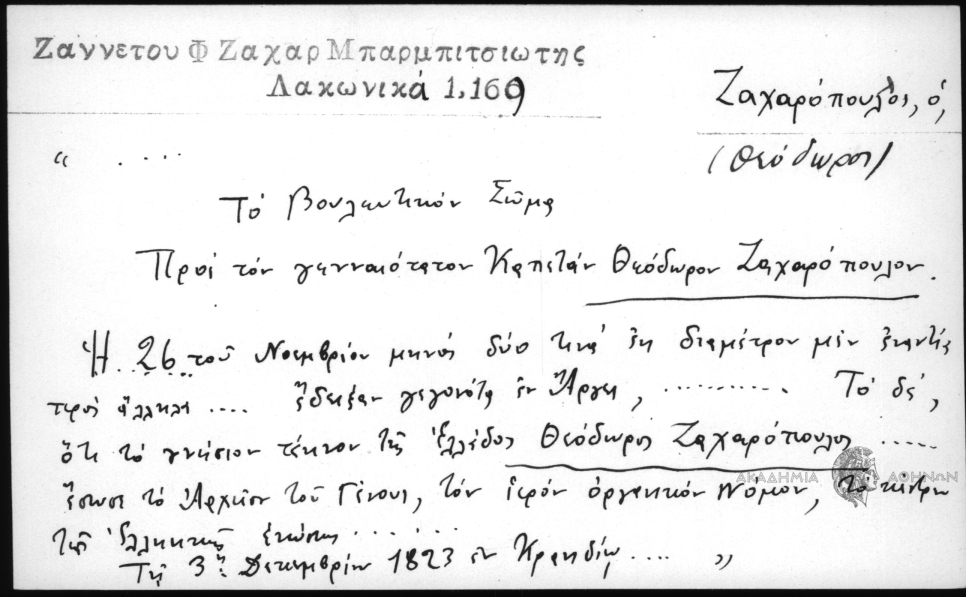 Ζαννετου Φ Ζαχαρ Μπαρμπιτσιωτης
Λακωνικά 1.169
Ζαχαρόπουλος, ὁ,
(Θεόδωρος)
“ . . . .
Τό Βουλευτικόν Σῶμα
Πρός τόν γενναιότατον Καπετάν Θεόδωρον Ζαχαρόπουλον.
Ἡ 26 τοῦ Νοεμβρίου μηνός δύο τινά ἐκ διαμέτρου μέν ἐναντία
πρός ἄλληλα .... ἔδειξαν γεγονότα ἐν Ἄργει, ........... Τό δέ,
ὅτι τό γνήσιον τέκνον τῆς Ἑλλάδος Θεόδωρος Ζαχαρόπουλος ......
ἔσωσε τό Ἀρχεῖον τοῦ Γένους, τόν ἱερόν ὀργανικόν Νόμον, τό κέντρον
τῆς Ἑλληνικῆς ἑνώσεως . . . . . .
Τῇ 3ῃ Δεκεμβρίου 1823 ἐν Κρανιδίῳ .... „
ΑΚΑΔΗΜΙΑ ΑΘΗΝΩΝ